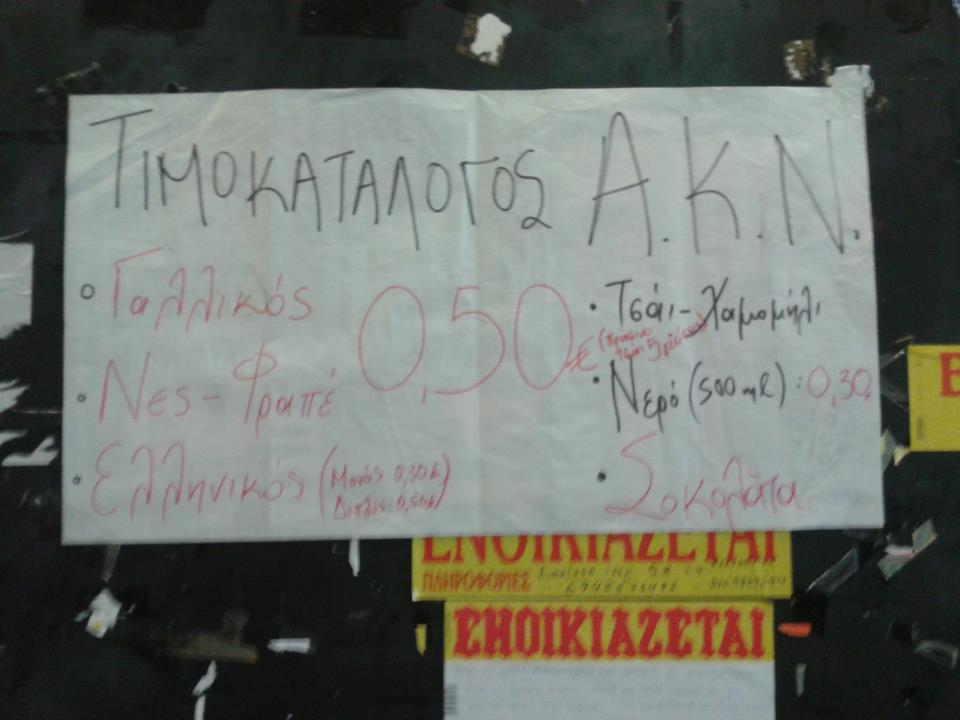 ΤΙΜΟΚΑΤΑΛΟΓΟΣ Α.Κ.Ν.
Γαλλικός
Νες-Φραπέ
Ελληνικός (Μονός: 0,30€
Διπλός: 0,50€)
0,50€
Τσάι-Χαμομήλι
(πράσινο
τσάι
Νερό (500ml): 0,30
Σοκολάτα
ΕΝΟΙΚΙΑΖΕΤΑΙ
ΠΛΗΡΟΦΟΡΙΕΣ
ΕΝΟΙΚΙΑΖΕΤΑΙ